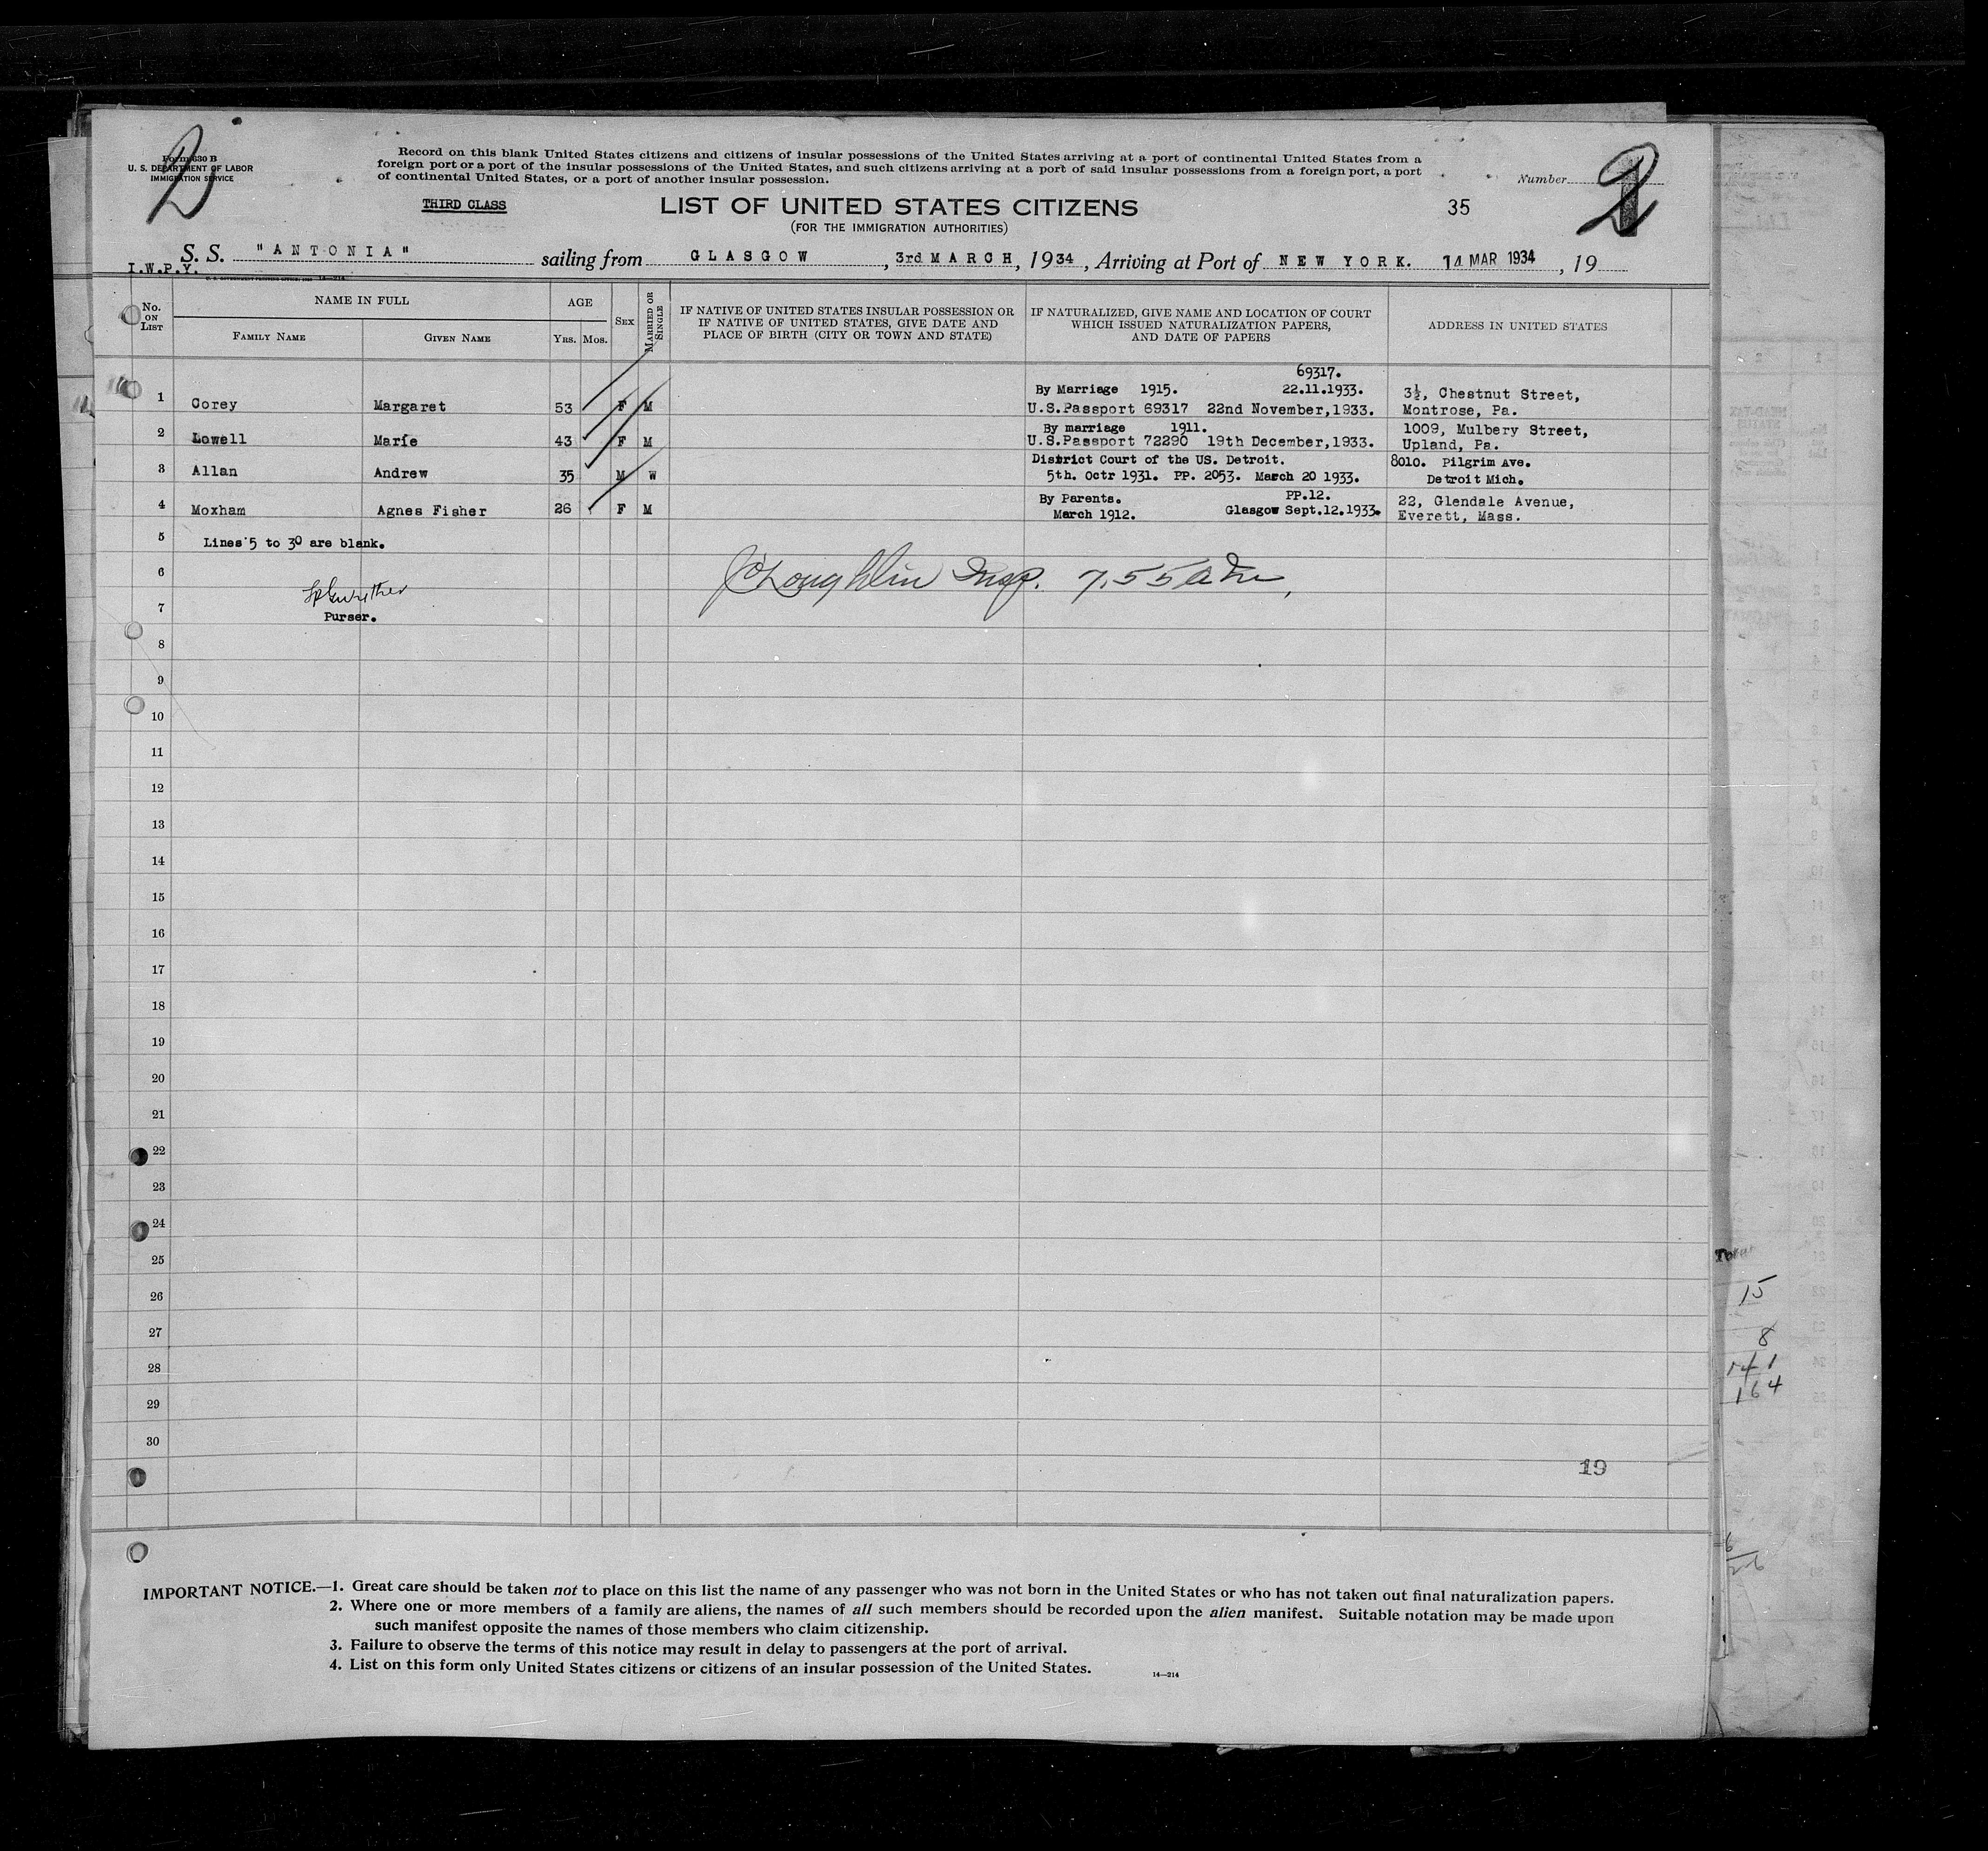 Form 630 B
U. S. DEPARTMENT OF LABOR
IMMIGRATION SERVICE
D
Record on this blank United States citizens and citizens of insular possessions of the United States arriving at a port of continental United States from a
foreign port or a port of the insular possessions of the United States, and such citizens arriving at a port of said insular possessions from a foreign port, a port
of continental United States, or a port of another insular possession.
Number
2
THIRD CLASS
LIST OF UNITED STATES CITIZENS
35
(FOR THE IMMIGRATION AUTHORITIES)
S. S. "ANTONIA" sailing from GLASGOW, 3rd MARCH, 1934, Arriving at Port of NEW YORK. 14 MAR 1934, 19
I.W.P.Y.
No. ON LIST
NAME IN FULL
FAMILY NAME
GIVEN NAME
AGE
YRS. MOS.
SEX
MARRIED OR SINGLE
IF NATIVE OF UNITED STATES INSULAR POSSESSION OR
IF NATIVE OF UNITED STATES, GIVE DATE AND
PLACE OF BIRTH (CITY OR TOWN AND STATE)
IF NATURALIZED, GIVE NAME AND LOCATION OF COURT
WHICH ISSUED NATURALIZATION PAPERS,
AND DATE OF PAPERS
ADDRESS IN UNITED STATES
69317.
By Marriage 1915. 22.11.1933. 3½, Chestnut Street,
1 Corey Margaret 53 F M U.S.Passport 69317 22nd November,1933. Montrose, Pa.
By marriage 1911. 1009, Mulbery Street,
2 Lowell Marie 43 F M U.S.Passport 72290 19th December,1933. Upland, Pa.
District Court of the US. Detroit. 8010. Pilgrim Ave.
3 Allan Andrew 35 M W 5th. Octr 1931. PP. 2053. March 20 1933. Detroit Mich.
By Parents. PP.12. 22, Glendale Avenue,
4 Moxham Agnes Fisher 26 F M March 1912. Glasgow Sept.12.1933. Everett, Mass.
5 Lines 5 to 30 are blank.
6 O'Loughlin Insp. 7.55 am
7
Purser.
8
9
10
11
12
13
14
15
16
17
18
19
20
21
22
23
24
25
26
27
28
29
30
19
Total
15
8
141
164
IMPORTANT NOTICE.—1. Great care should be taken not to place on this list the name of any passenger who was not born in the United States or who has not taken out final naturalization papers.
2. Where one or more members of a family are aliens, the names of all such members should be recorded upon the alien manifest. Suitable notation may be made upon
such manifest opposite the names of those members who claim citizenship.
3. Failure to observe the terms of this notice may result in delay to passengers at the port of arrival.
4. List on this form only United States citizens or citizens of an insular possession of the United States.
14—214